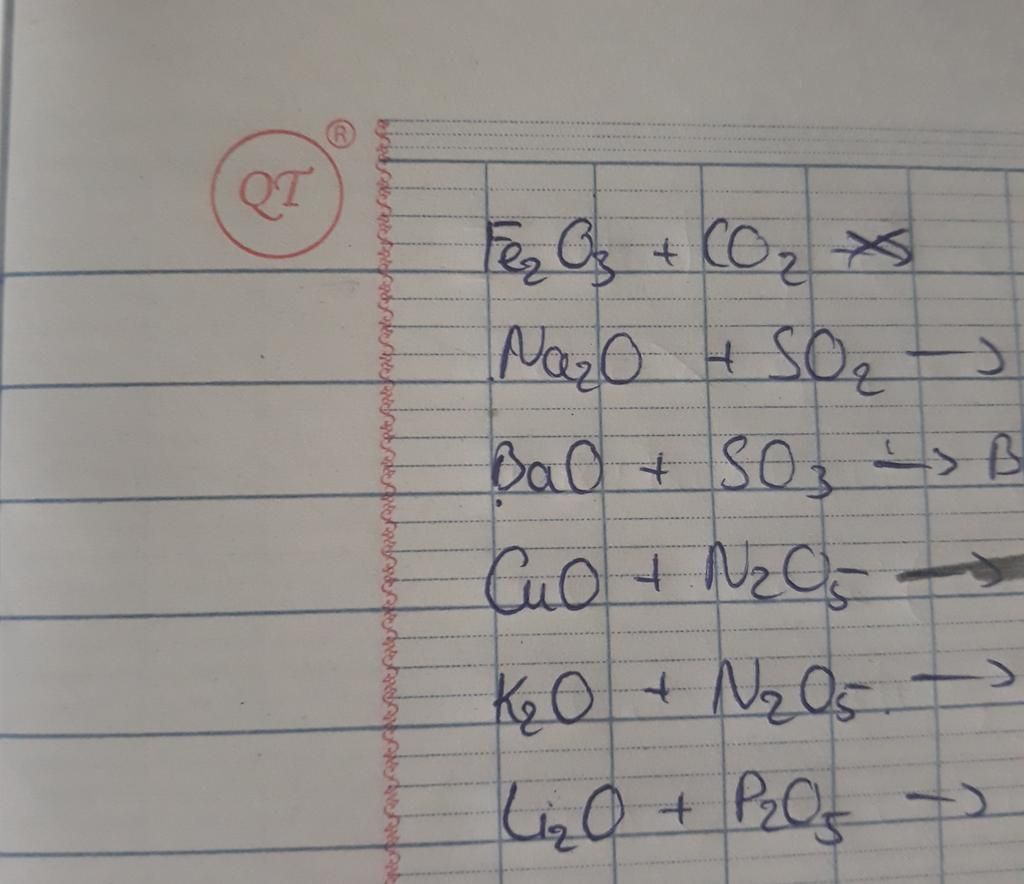 QT ®
Fe₂O₃ + CO₂ ↛
Na₂O + SO₂ →
BaO + SO₃ → B
CuO + N₂O₅ →
K₂O + N₂O₅ →
Li₂O + P₂O₅ →